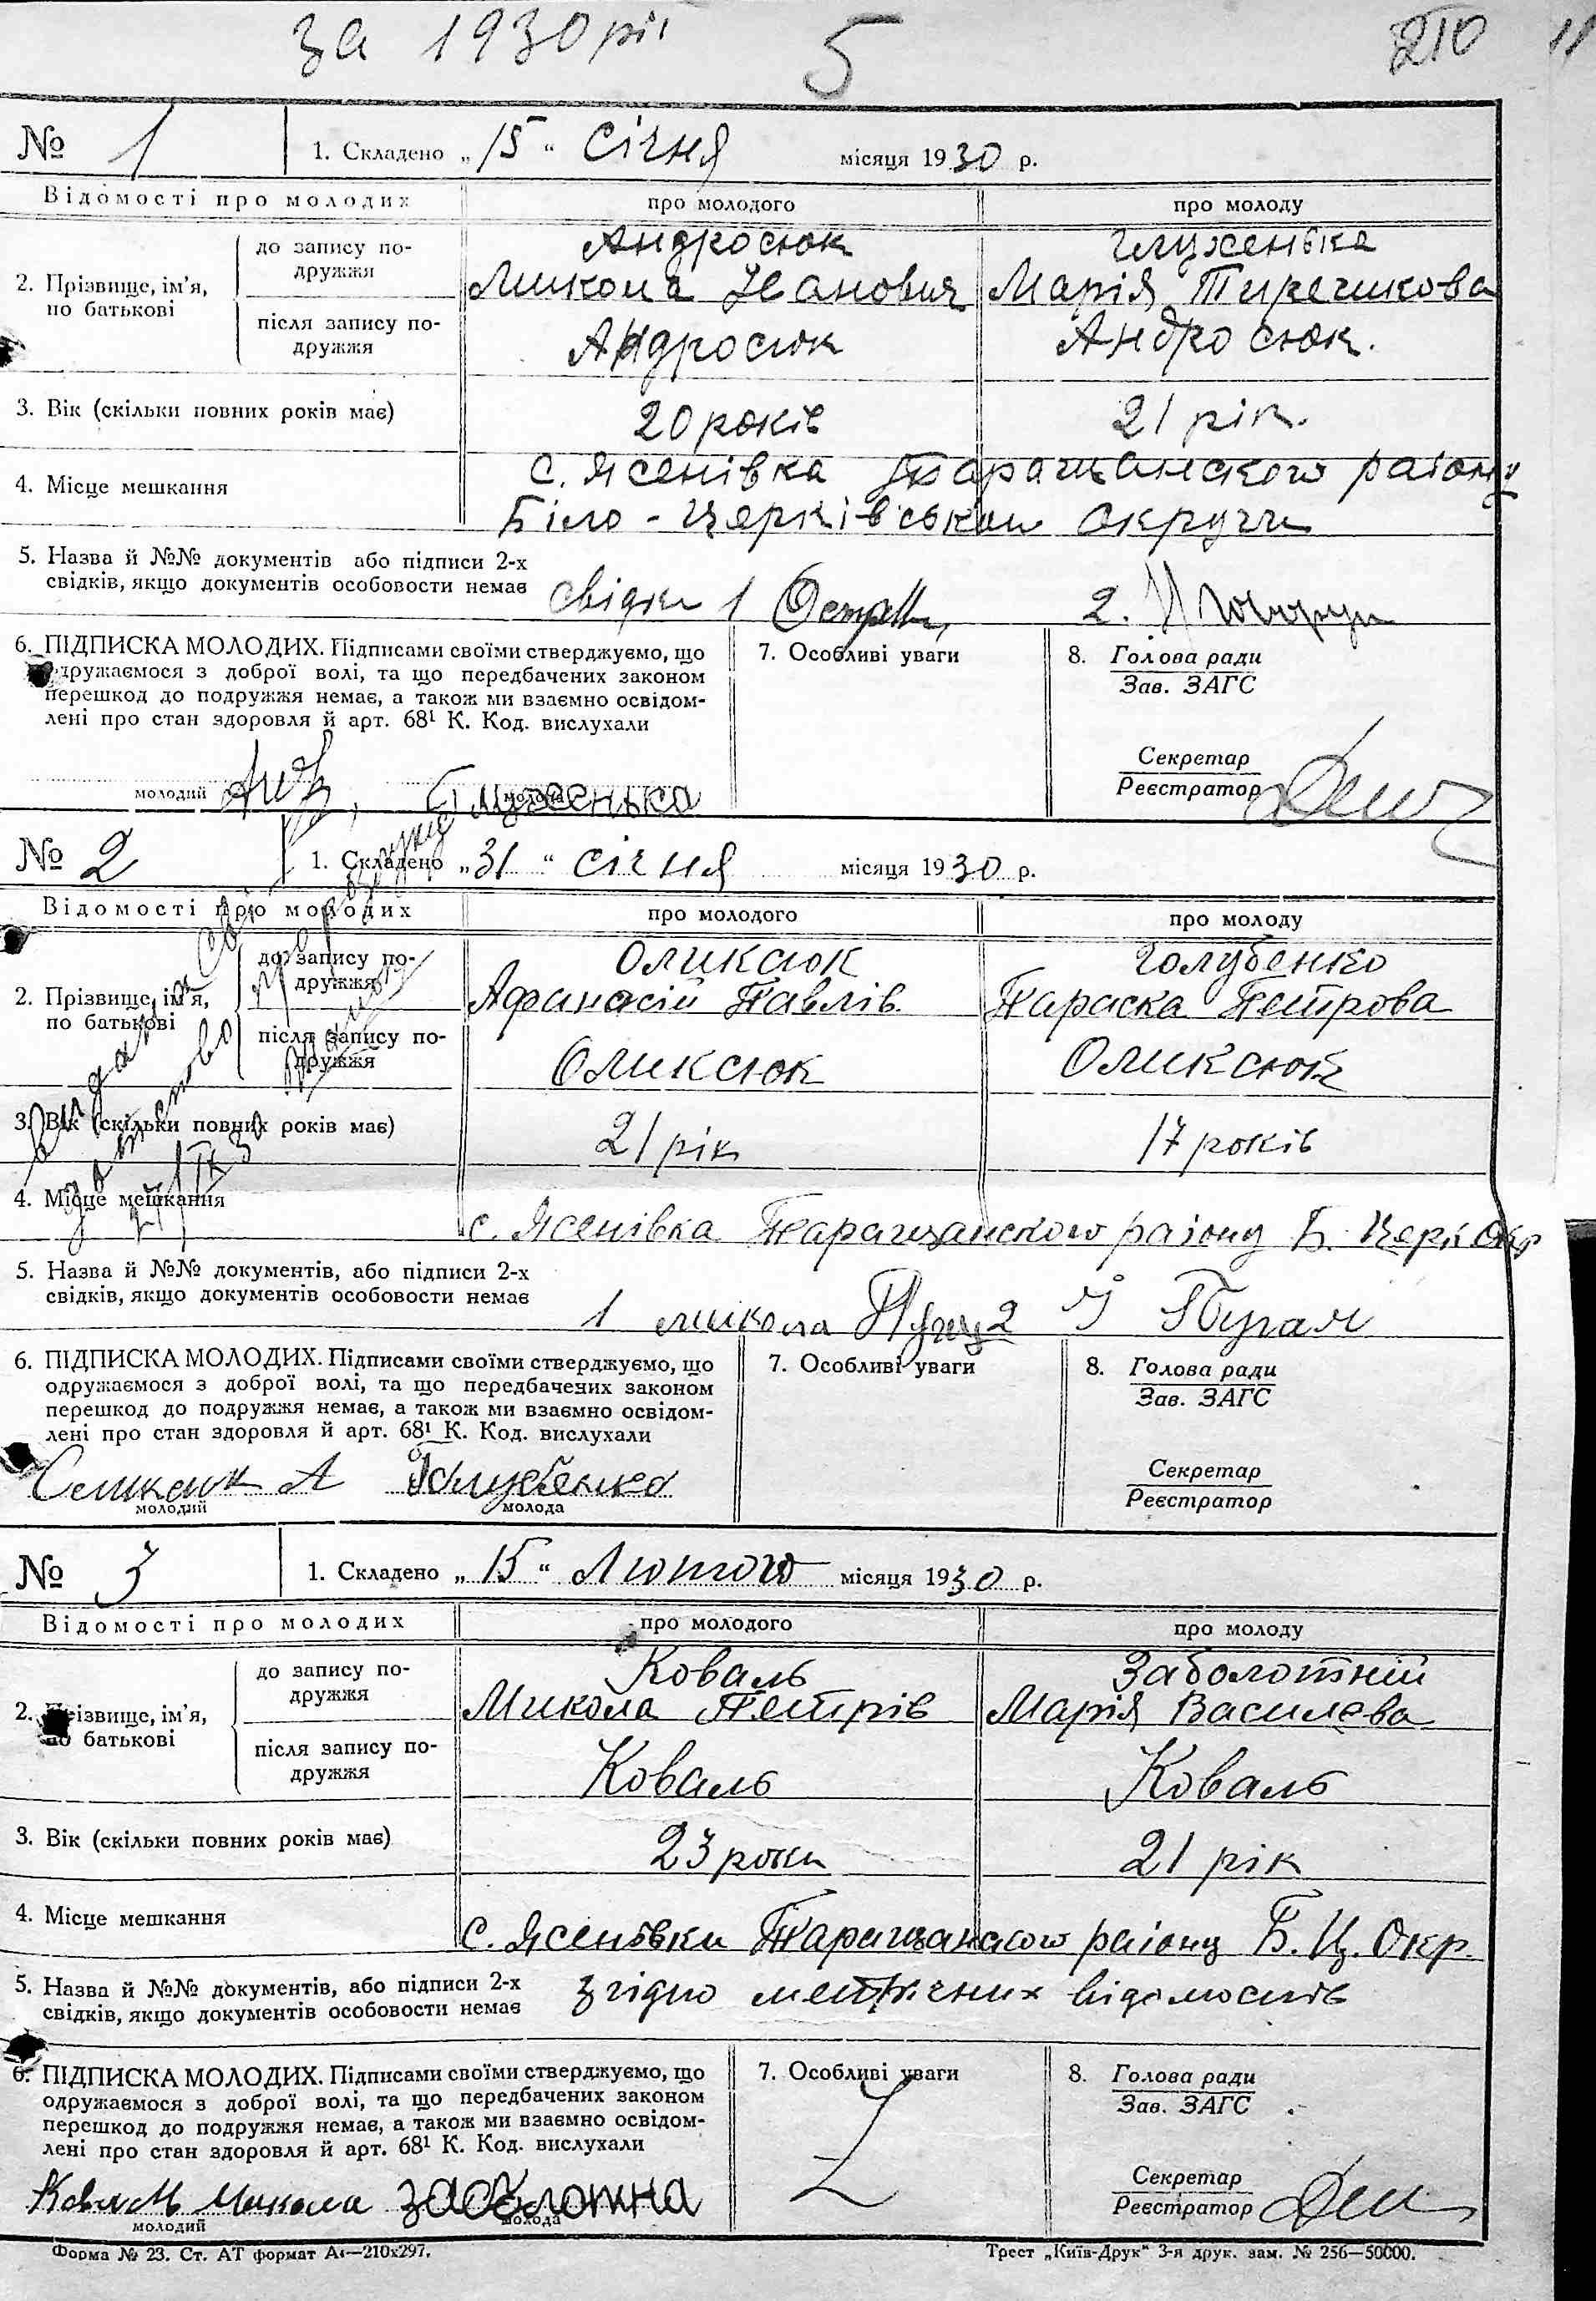 за 1930 рік 5 210 11
№ 1 1. Складено „15“ Січня місяця 1930 р.
Відомості про молодих про молодого про молоду
2. Прізвище, ім’я, по батькові
до запису подружжя
Андросюк
Микола Іванович
Глуженька
Марія
після запису подружжя
Андросюк Андросюк.
3. Вік (скільки повних років має) 20 років 21 рік.
4. Місце мешкання с. Ясенівка Таращанского району
Біло-Церківськои округи
5. Назва й №№ документів або підписи 2-х
свідків, якщо документів особовости немає свідки 1 2.
6. ПІДПИСКА МОЛОДИХ. Підписами своїми стверджуємо, що
одружаємося з доброї волі, та що передбачених законом
перешкод до подружжя немає, а також ми взаємно освідом-
лені про стан здоровля й арт. 68¹ К. Код. вислухали
7. Особливі уваги
8. Голова ради
Зав. ЗАГС
Секретар
Реєстратор
молодий Глуженька молода
№ 2 1. Складено „31“ січня місяця 1930 р.
Відомості про молодих про молодого про молоду
2. Прізвище, ім’я,
по батькові
до запису по-
дружжя
Оликсюк
Афанасій Павлів
Голубенко
Параска Петрова
після запису по-
дружжя
Оликсюк Оликсюк
3. Вік (скільки повних років має) 21 рік 17 років
4. Місце мешкання
с. Ясенівка Таращанского району Б. Церк Окр
5. Назва й №№ документів, або підписи 2-х
свідків, якщо документів особовости немає 1 микола 2
6. ПІДПИСКА МОЛОДИХ. Підписами своїми стверджуємо, що
одружаємося з доброї волі, та що передбачених законом
перешкод до подружжя немає, а також ми взаємно освідом-
лені про стан здоровля й арт. 68¹ К. Код. вислухали
7. Особливі уваги
8. Голова ради
Зав. ЗАГС
Секретар
Реєстратор
Оликсюк А Голубенко
молодий молода
№ 3 1. Складено „15“ Лютого місяця 1930 р.
Відомості про молодих про молодого про молоду
2. Прізвище, ім’я,
по батькові
до запису по-
дружжя
Коваль
Микола Петрів
Заболотній
Марія Василева
після запису по-
дружжя
Коваль Коваль
3. Вік (скільки повних років має) 23 роки 21 рік
4. Місце мешкання
с. Ясенівки Таращанского району Б. Ц. Окр.
5. Назва й №№ документів, або підписи 2-х
свідків, якщо документів особовости немає згідно метричних відомостів
6. ПІДПИСКА МОЛОДИХ. Підписами своїми стверджуємо, що
одружаємося з доброї волі, та що передбачених законом
перешкод до подружжя немає, а також ми взаємно освідом-
лені про стан здоровля й арт. 68¹ К. Код. вислухали
7. Особливі уваги
8. Голова ради
Зав. ЗАГС
Секретар
Реєстратор
Коваль Микола заболотна
молодий молода
Форма № 23. Ст. АТ формат А₄—210х297. Трест „Київ-Друк“ 3-я друк. зам. № 256—50000.